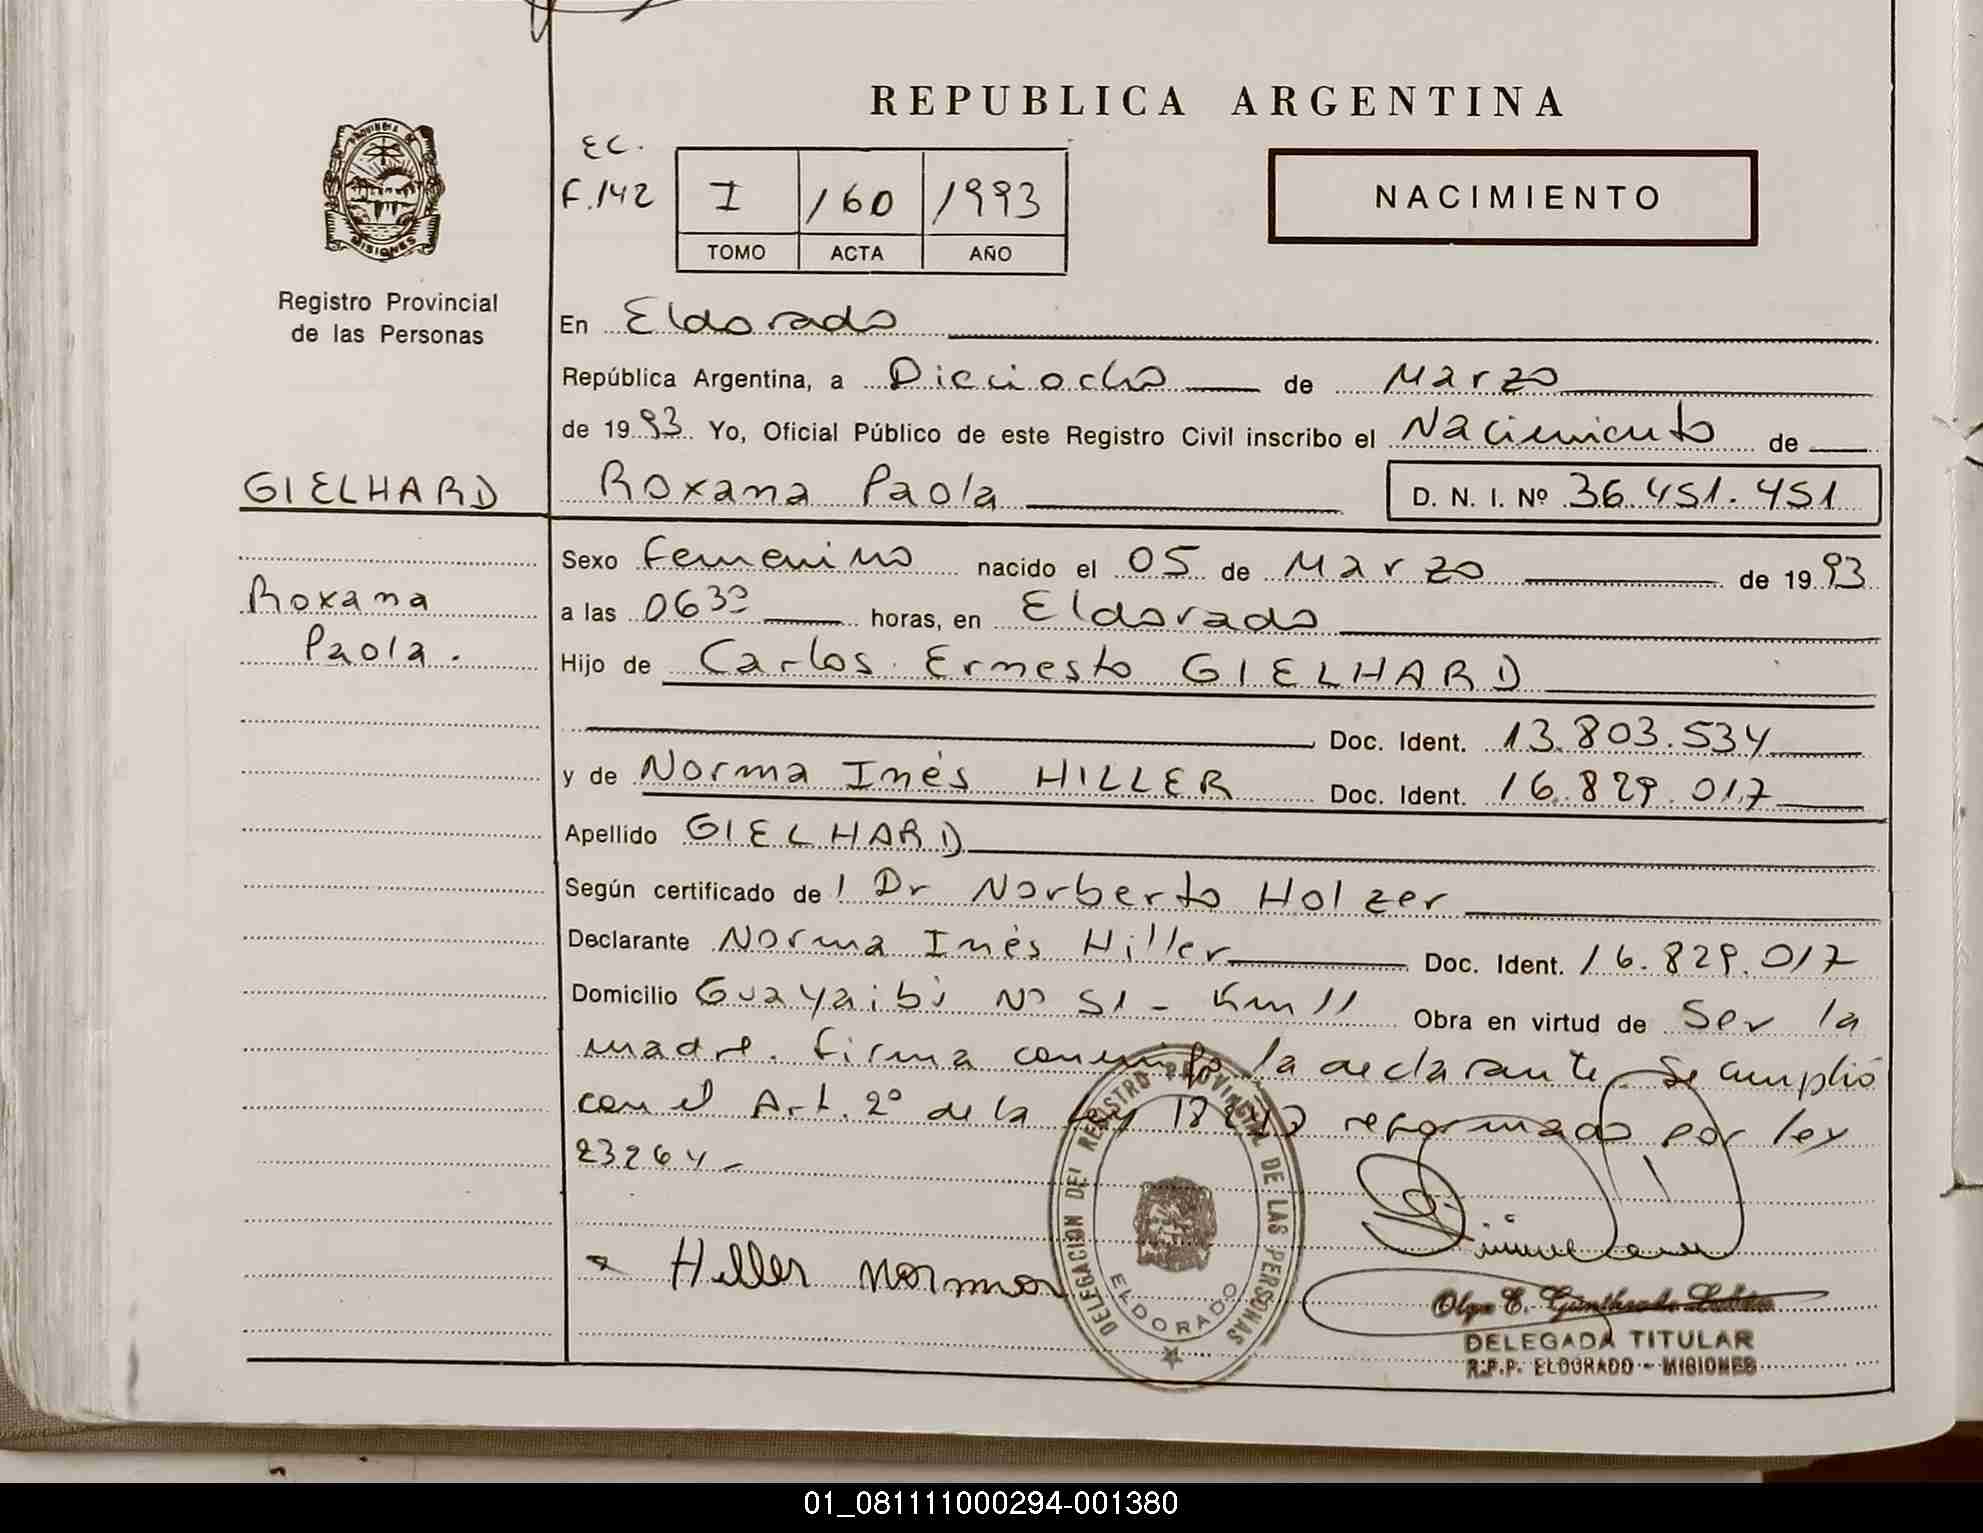 REPUBLICA ARGENTINA
EC.
F.142
I 160 1993
TOMO ACTA AÑO
NACIMIENTO
PROVINCIA DE
MISIONES
Registro Provincial
de las Personas
En Eldorado
República Argentina, a Dieciocho de Marzo
de 1993 Yo, Oficial Público de este Registro Civil inscribo el Nacimiento de
GIELHARD Roxana Paola D. N. I. Nº 36.451.451
Sexo Femenino nacido el 05 de Marzo de 1993
Roxana
a las 06³⁰ horas, en Eldorado
Paola.
Hijo de Carlos Ernesto GIELHARD
Doc. Ident. 13.803.534
y de Norma Inés HILLER Doc. Ident. 16.829.017
Apellido GIELHARD
Según certificado de l Dr Norberto Holzer
Declarante Norma Inés Hiller Doc. Ident. 16.829.017
Domicilio Guayaibi Nº 51 - Km 11 Obra en virtud de Ser la
madre. Firma conmigo la declarante. Se cumplió
con el Art. 2º de la Ley 18248 reformado por ley
23264 -
DELEGACION DEL REGISTRO PROVINCIAL DE LAS PERSONAS
ELDORADO
Hiller Norma
Olga E.
DELEGADA TITULAR
R.P.P. ELDORADO - MISIONES
01_081111000294-001380